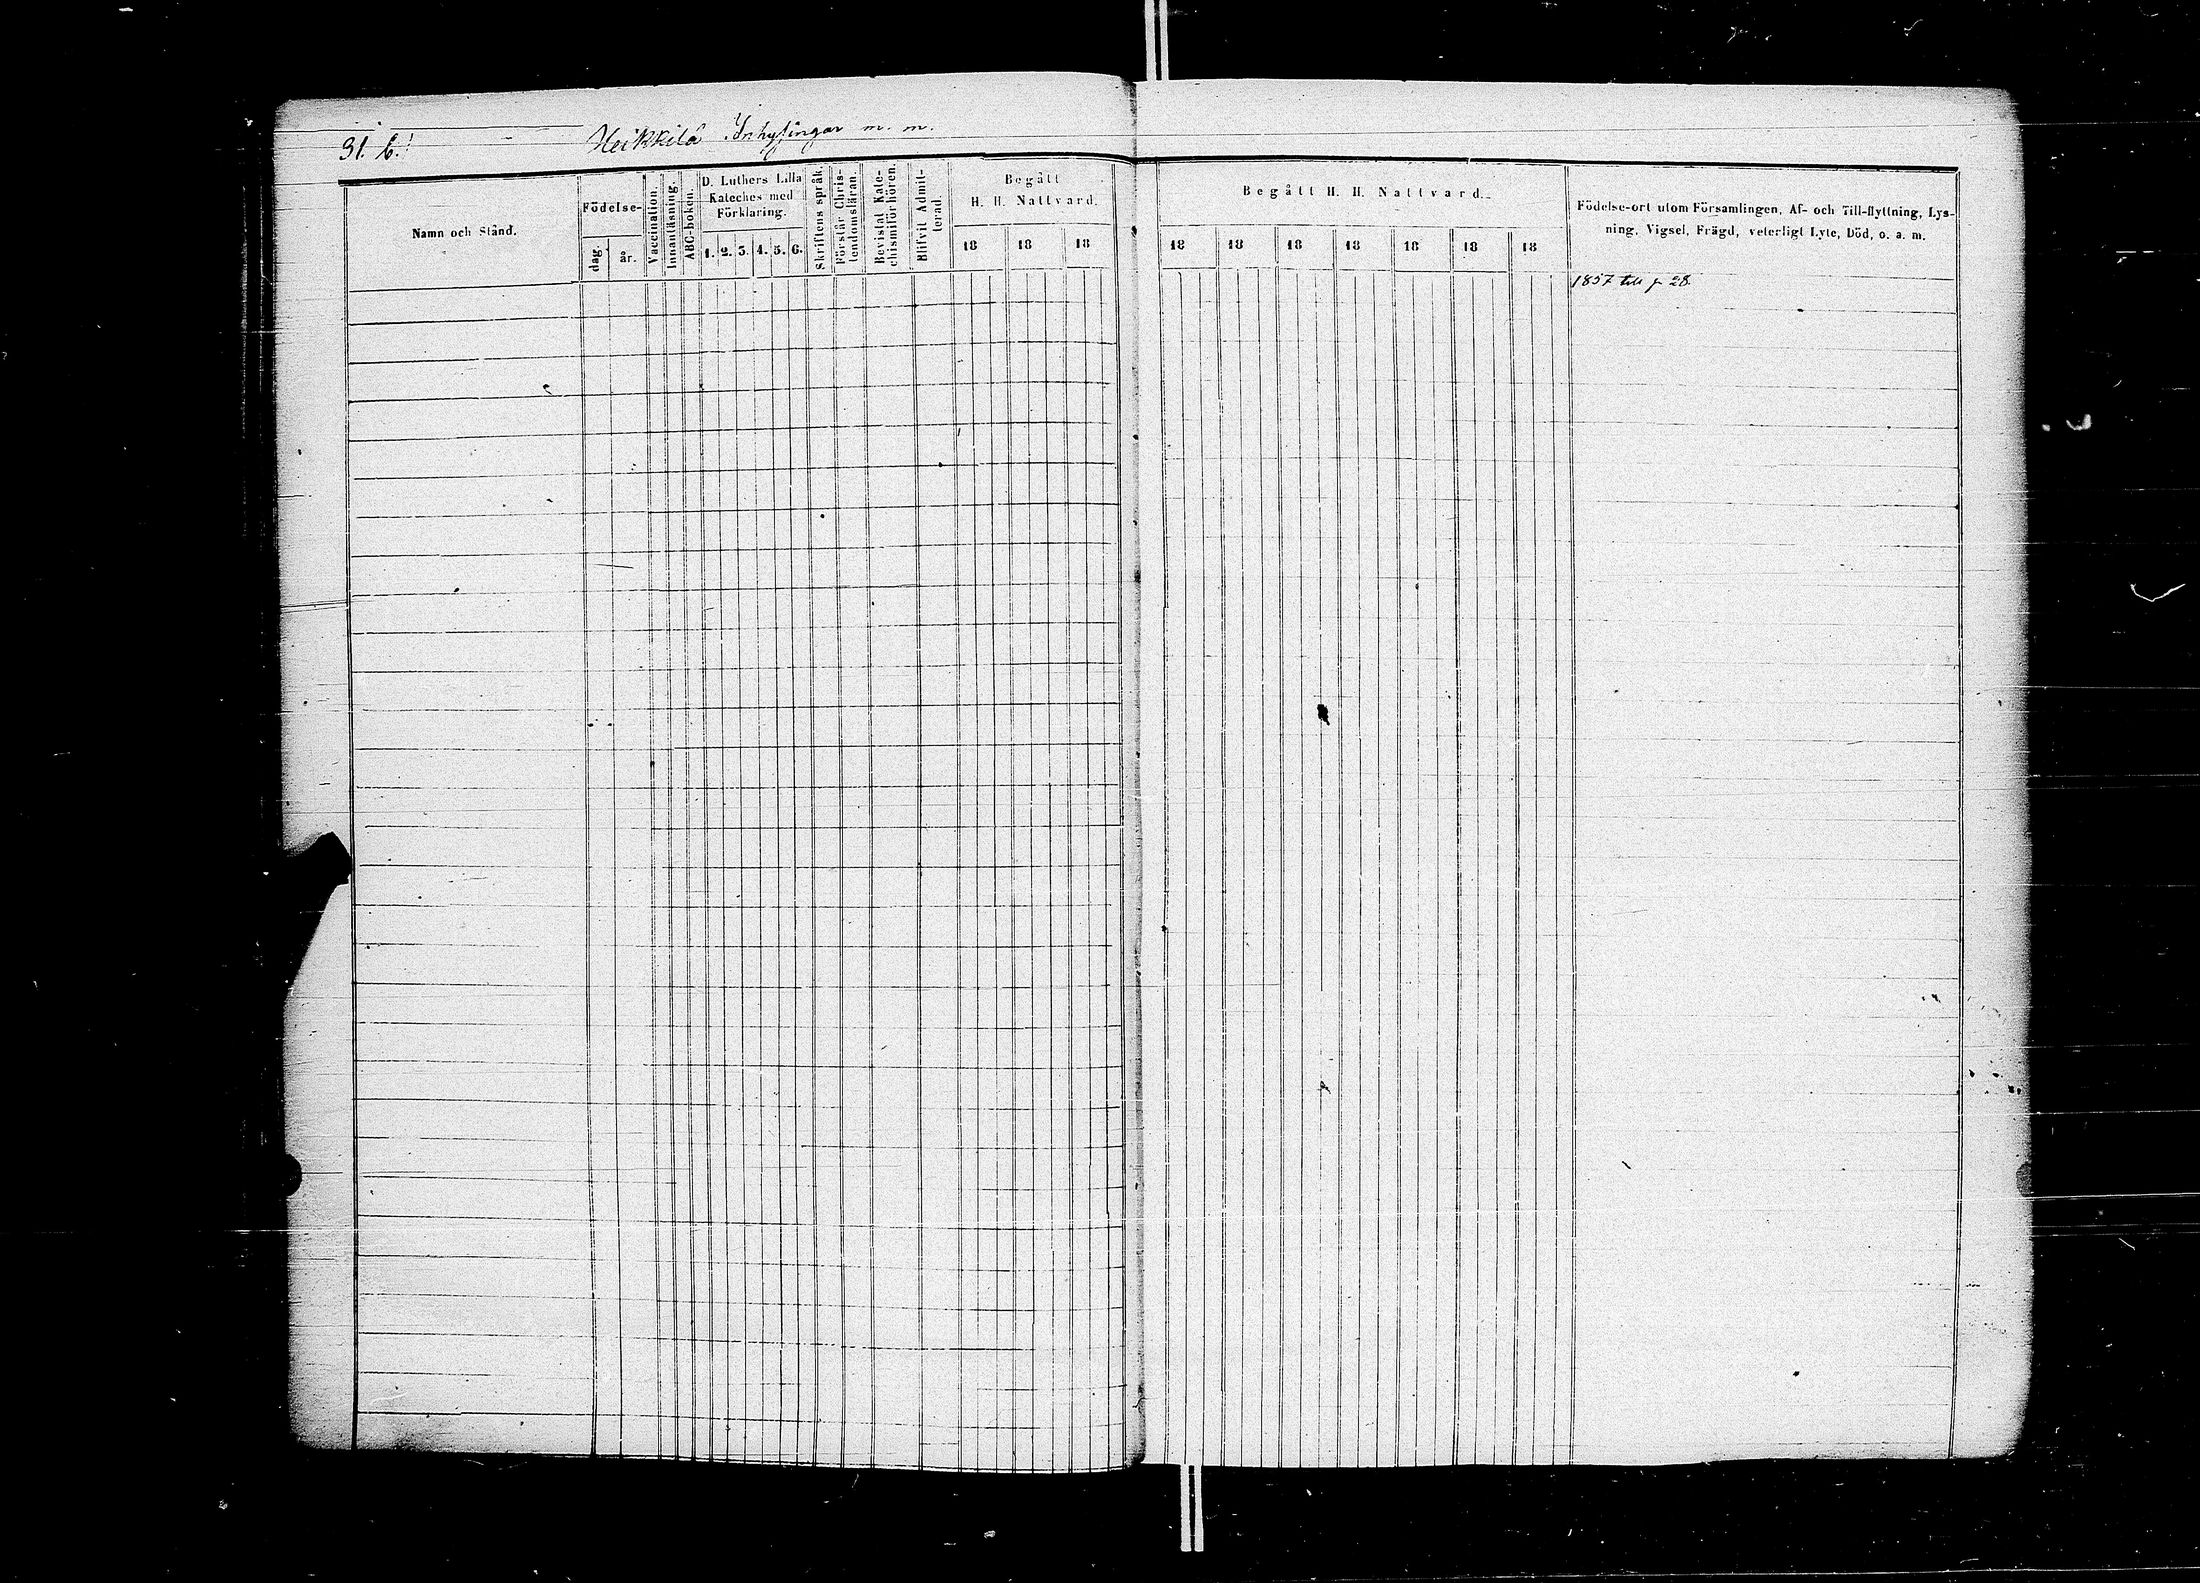 31. b.
Heikkilä Inhysingar m. m.
Namn och Stånd.
Födelse-
dag.
år.
Vaccination.
Innantläsning.
ABC-boken.
D. Luthers Lilla
Kateches med
Förklaring.
1. 2. 3. 4. 5. 6.
Skriftens språk.
Förstår Chris-
tendomsläran.
Bevistat Kate-
chismiförhören.
Blifvit Admit-
terad.
Begått
H. H. Nattvard.
18 18 18
Begått H. H. Nattvard.
18 18 18 18 18 18 18
Födelse-ort utom Församlingen, Af- och Till-flyttning, Lys-
ning, Vigsel, Frägd, veterligt Lyte, Död, o. a. m.
1857 till p 28.